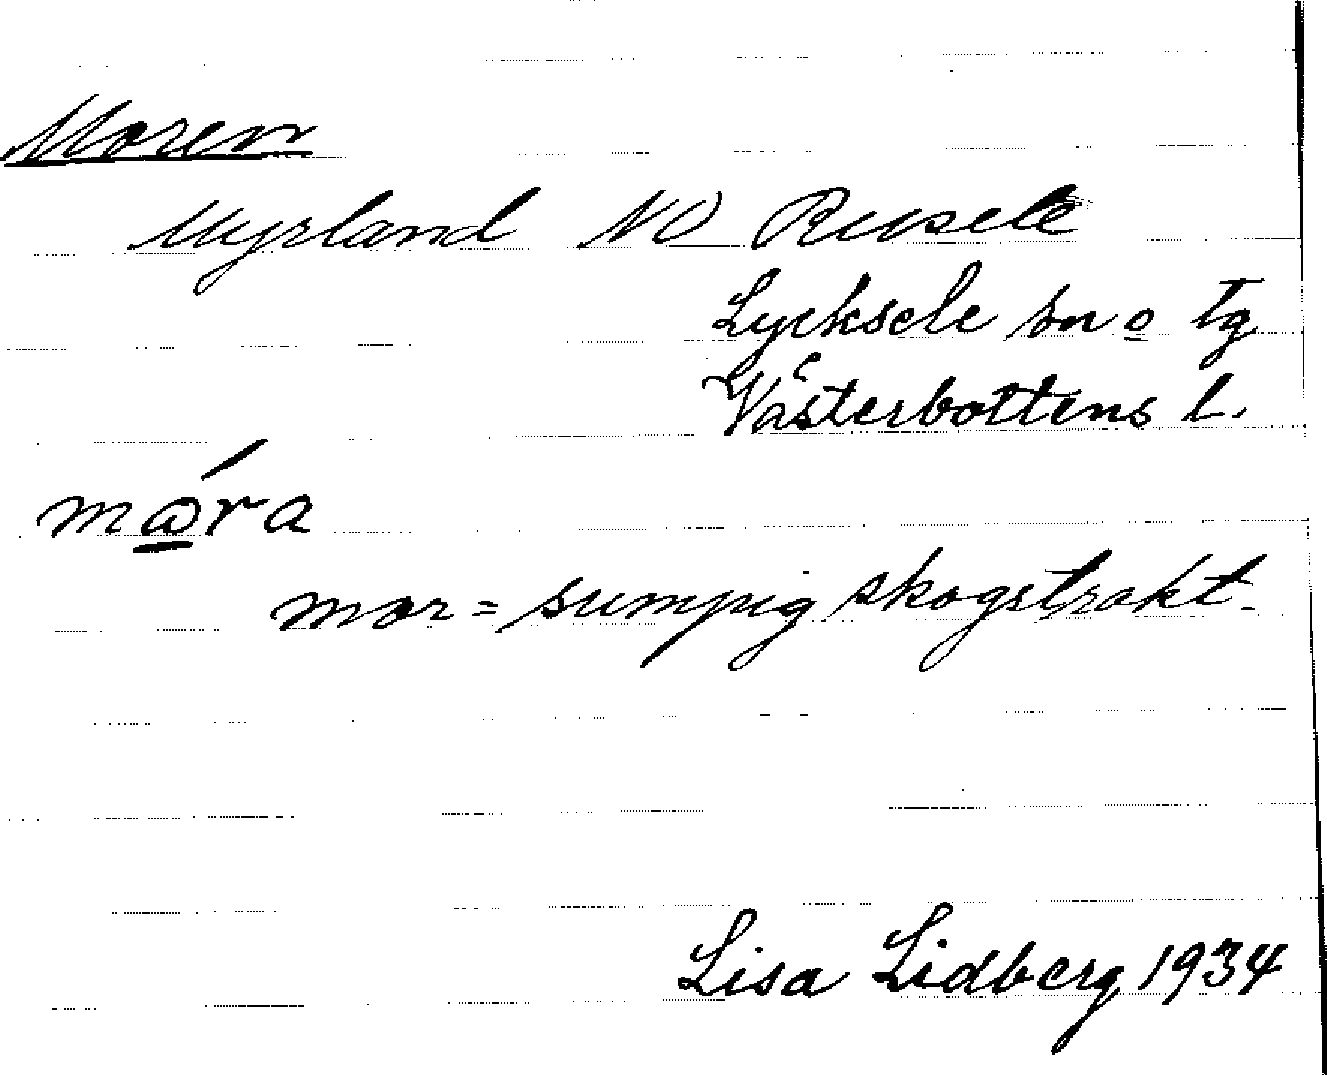 Moren
Myrland NO Rusele
Lycksele sn o tg
Västerbottens l.
mώ̲ra
mor = sumpig skogstrakt.
Lisa Lidberg 1934